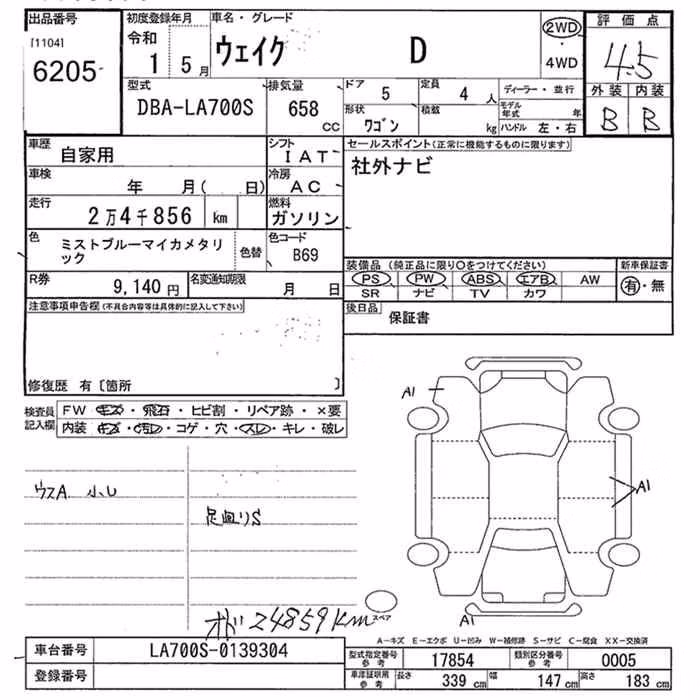 出品番号 初度登録年月 車名・グレード 評価点
[1104] 令和 ウェイク D 2WD・4WD 4.5
6205 1 5月
型式 排気量 ドア 5 定員 4人 ディーラー・並行 外装 内装
DBA-LA700S 658 CC 形状 ワゴン 積載 kg モデル年式 年 B B
ハンドル 左・右
車歴 自家用 シフト IAT セールスポイント(正常に機能するものに限ります)
車検 年 月( 日) 冷房 AC 社外ナビ
走行 2万4千856 km 燃料 ガソリン
色 ミストブルーマイカメタリック 色替 色コード B69
R券 9,140円 名変通知期限 月 日
装備品(純正品に限り○をつけてください) 新車保証書
PS PW ABS エアB AW 有・無
SR ナビ TV カワ
注意事項申告欄(不具合内容等は具体的に記入して下さい) 後日品 保証書
修復歴 有〔箇所 〕
検査員記入欄 FW キズ・飛石・ヒビ割・リペア跡・×要
内装 キズ・汚レ・コゲ・穴・スレ・キレ・破レ
A1
A1
ウスA 小U
足廻りS
スペア
A1
オド 24859km
A-キズ E-エクボ U-凹み W-補修跡 S-サビ C-腐食 XX-交換済
車台番号 LA700S-0139304 型式指定番号 参考 17854 類別区分番号 参考 0005
登録番号 車庫証明用 参考 長さ 339cm 幅 147cm 高さ 183cm